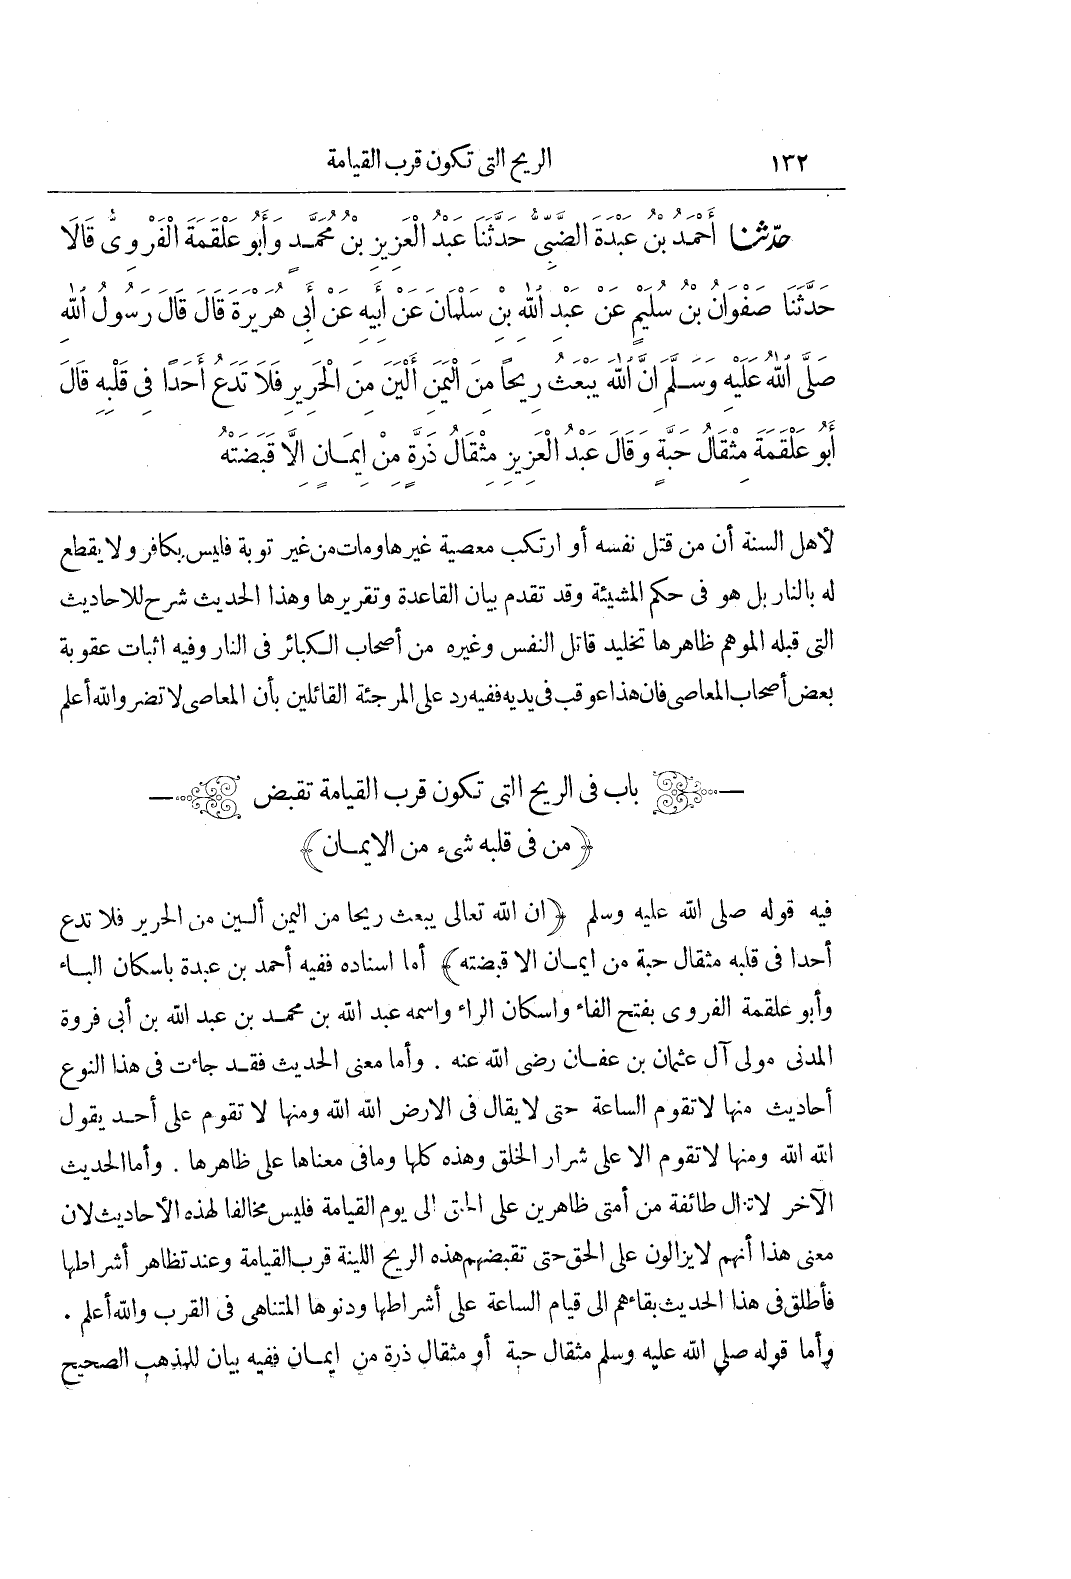 ١٣٢ الريح التى تكون قرب القيامة
حدّثنا أَحْمَدُ بْنُ عَبْدَةَ الضَّبِّىُّ حَدَّثَنَا عَبْدُ الْعَزِيزِ بْنُ مُحَمَّدٍ وَأَبُو عَلْقَمَةَ الْفَرْوِىُّ قَالَا
حَدَّثَنَا صَفْوَانُ بْنُ سُلَيْمٍ عَنْ عَبْدِ اللهِ بْنِ سَلْمَانَ عَنْ أَبِيهِ عَنْ أَبِى هُرَيْرَةَ قَالَ قَالَ رَسُولُ اللهِ
صَلَّى اللهُ عَلَيْهِ وَسَلَّمَ إِنَّ اللهَ يَبْعَثُ رِيحًا مِنَ الْيَمَنِ أَلْيَنَ مِنَ الْحَرِيرِ فَلَا تَدَعُ أَحَدًا فِى قَلْبِهِ قَالَ
أَبُو عَلْقَمَةَ مِثْقَالُ حَبَّةٍ وَقَالَ عَبْدُ الْعَزِيزِ مِثْقَالُ ذَرَّةٍ مِنْ إِيمَانٍ إِلَّا قَبَضَتْهُ
لأهل السنة أن من قتل نفسه أو ارتكب معصية غيرها ومات من غير توبة فليس بكافر ولا يقطع
له بالنار بل هو فى حكم المشيئة وقد تقدم بيان القاعدة وتقريرها وهذا الحديث شرح للاحاديث
التى قبله الموهم ظاهرها تخليد قاتل النفس وغيره من أصحاب الكبائر فى النار وفيه اثبات عقوبة
بعض أصحاب المعاصى فان هذا عوقب فى يديه ففيه رد على المرجئة القائلين بأن المعاصى لا تضر والله أعلم
باب فى الريح التى تكون قرب القيامة تقبض
﴿من فى قلبه شىء من الايمان﴾
فيه قوله صلى الله عليه وسلم ﴿ان الله تعالى يبعث ريحا من اليمن ألين من الحرير فلا تدع
أحدا فى قلبه مثقال حبة من ايمان الا قبضته﴾ أما اسناده ففيه أحمد بن عبدة باسكان الباء
وأبو علقمة الفروى بفتح الفاء واسكان الراء واسمه عبد الله بن محمد بن عبد الله بن أبى فروة
المدنى مولى آل عثمان بن عفان رضى الله عنه . وأما معنى الحديث فقد جاءت فى هذا النوع
أحاديث منها لا تقوم الساعة حتى لا يقال فى الارض الله الله ومنها لا تقوم على أحد يقول
الله الله ومنها لا تقوم الا على شرار الخلق وهذه كلها وما فى معناها على ظاهرها . وأما الحديث
الآخر لا تزال طائفة من أمتى ظاهرين على الحق الى يوم القيامة فليس مخالفا لهذه الأحاديث لان
معنى هذا أنهم لا يزالون على الحق حتى تقبضهم هذه الريح اللينة قرب القيامة وعند تظاهر أشراطها
فأطلق فى هذا الحديث بقاءهم الى قيام الساعة على أشراطها ودنوها المتناهى فى القرب والله أعلم .
وأما قوله صلى الله عليه وسلم مثقال حبة أو مثقال ذرة من ايمان ففيه بيان للمذهب الصحيح